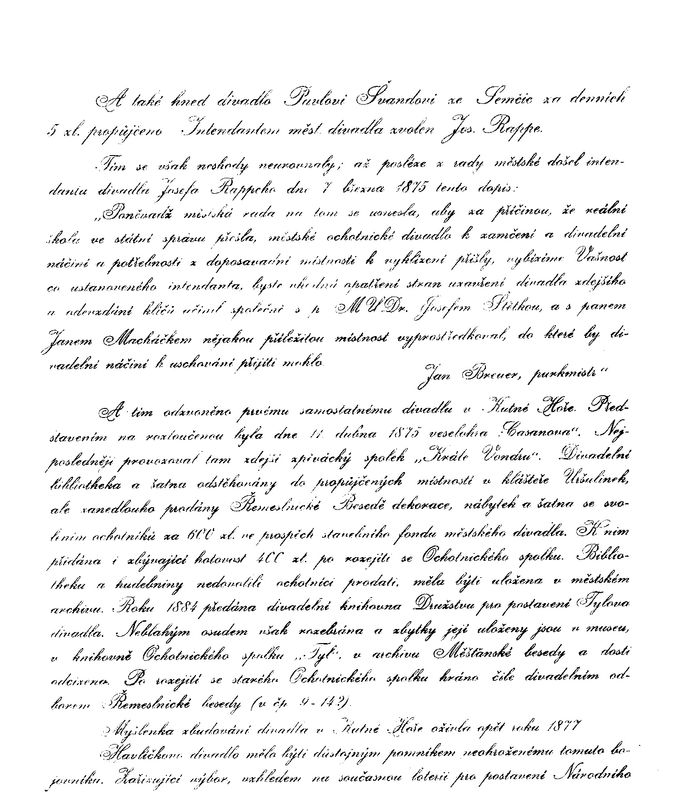 A také hned divadlo Pavlovi Švandovi ze Semčic za denních
5 zl. propůjčeno Intendantem měst. divadla zvolen Jos. Rappe.
Tím se však neshody neurovnaly; až posléze z rady městské došel inten-
dantu divadla Josefa Rappeho dne 7 března 1875 tento dopis:
„Poněvadž městská rada na tom se usnesla, aby za příčinou, že reální
škola ve státní správu přešla, městské ochotnické divadlo k zamčení a divadelní
náčiní a potřebnosti z doposavadní místnosti k vyklizení přišly, vybízíme Vašnost
co ustanoveného intendanta, byste vhodná opatření stran uzavření divadla zdejšího
a odevzdání klíčů učinil společně s p. MUDr. Josefem Štětkou, a s panem
Janem Macháčkem nějakou příležitou místnost vyprostředkoval, do které by di-
vadelní náčiní k uschování přijíti mohlo.
Jan Breuer, purkmistr“
A tím odzvoněno prvému samostatnému divadlu v Kutné Hoře. Před-
stavením na rozloučenou byla dne 11 dubna 1875 veselohra „Casanova“. Nej-
posledněji provozoval tam zdejší zpěvácký spolek „Krále Vondru“. Divadelní
bibliotheka a šatna odstěhovány do propůjčených místností v klášteře Uršulinek,
ale zanedlouho prodány Řemeslnické Besedě dekorace, nábytek a šatna se svo-
lením ochotníků za 600 zl. ve prospěch stavebního fondu městského divadla. K nim
přidána i zbývající hotovost 400 zl. po rozejití se Ochotnického spolku. Biblio-
theku a hudebniny nedovolili ochotníci prodati, měla býti uložena v městském
archivu. Roku 1884 předána divadelní knihovna Družstvu pro postavení Tylova
divadla. Neblahým osudem však rozebrána a zbytky její uloženy jsou v museu,
v knihovně Ochotnického spolku „Tyl“, v archivu Měšťanské besedy a dosti
odcizeno. Po rozejití se starého Ochotnického spolku hráno čile divadelním od-
borem Řemeslnické besedy (v čp. 9-142).
Myšlenka zbudování divadla v Kutné Hoře oživla opět roku 1877
Havlíčkovo divadlo mělo býti důstojným pomníkem neohroženému tomuto bo-
jovníku. Zařizující výbor, vzhledem na současnou loterii pro postavení Národního